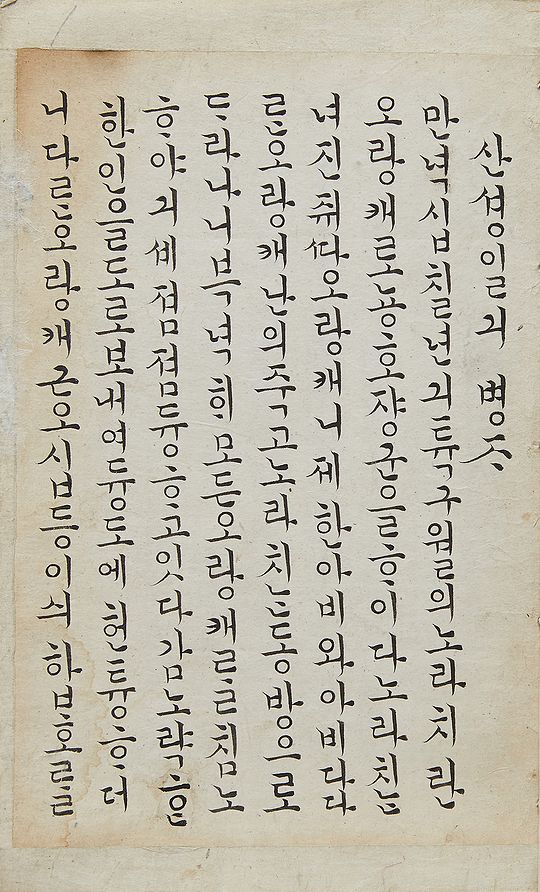 산셩일긔 병ᄌᆞ
만녁 십칠년 긔튝 구월의 노라치란
오랑캐로 뇽호쟝군을 ᄒᆞ이다 노라치ᄂᆞᆫ
녀진 쥐ᄯᅡ 오랑캐니 제 한아비와 아비 다 다
ᄅᆞᆫ 오랑캐 난의 죽고 노라치ᄂᆞᆫ 동방으로
ᄃᆞ라나니 븍녁희 모든 오랑캐ᄅᆞᆯ 침노
ᄒᆞ야 긔셰 졈졈 듕ᄒᆞ고 잇다감 노략ᄒᆞᆫ
한인을 도로 보내여 듕도에 헌튱ᄒᆞ더
니 다ᄅᆞᆫ 오랑캐 근오십 등이 싀합호ᄅᆞᆯ